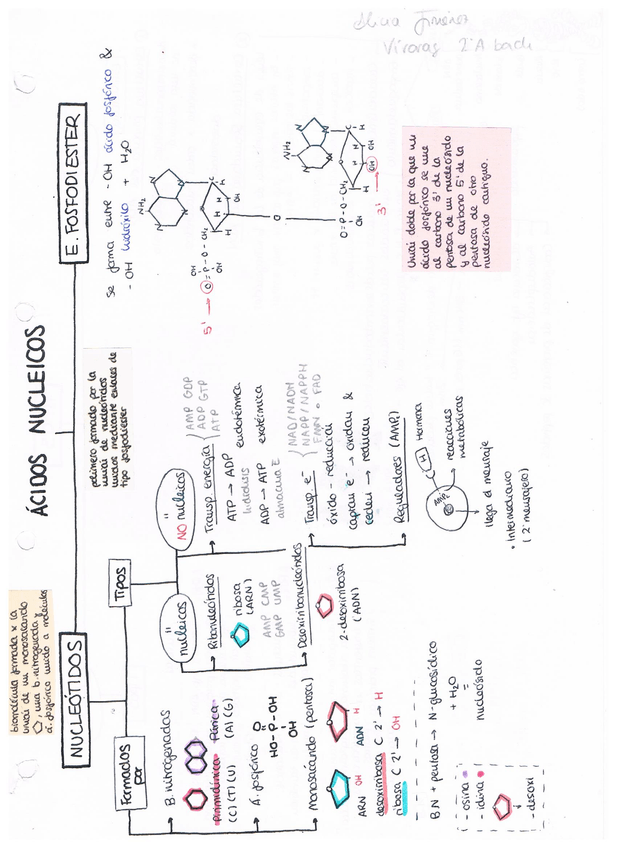 Jiménez
2ºA bach
ÁCIDOS NUCLEICOS
NUCLEÓTIDOS
biomolécula formada x la
unión de un monosacárido
, una b. nitrogenada y
á. fosfórico unido a moléculas
polímero formado por la
unión de nucleótidos
unidos mediante enlaces de
tipo fosfodiester
E. FOSFODIESTER
Formados
por
B. nitrogenadas
pirimidínica Púrica
(C)(T)(U) (A)(G)
Á. fosfórico
O
HO-P-OH
OH
Monosacárido (pentosa)
OH H
ARN ADN
desoxirribosa C 2' → H
ribosa C 2' → OH
BN + pentosa → N-glucosídico
+ H₂O
=
nucleósido
- osina
- idina
- desoxi
Tipos
nucleicos
Ribonucleótidos
ribosa
(ARN)
AMP CMP
GMP UMP
Desoxirribonucleótidos
2-desoxirribosa
(ADN)
NO nucleicos
Transp energía
AMP GDP
ADP GTP
ATP
ATP → ADP endotérmica
hidrólisis
ADP → ATP exotérmica
almacena E
Transp e⁻
NAD/NADH
NADP/NADPH
FMN o FAD
óxido - reducción
captan e⁻ → oxidan &
ceden → reducen
Reguladores (AMPc)
AMPc
H Hormona
reacciones
metabólicas
llega el mensaje
• Intermediario
(2º mensajero)
se forma entre -OH ácido fosfórico &
-OH hidróxilo + H₂O
NH₂
5' → O=P-O-CH₂
OH
O
NH₂
O=P-O-CH₂
OH
3' → OH
Unión doble por la que un
ácido fosfórico se une
al carbono 3' de la
pentosa de un nucleósido
y al carbono 5' de la
pentosa de otro
nucleósido contiguo.